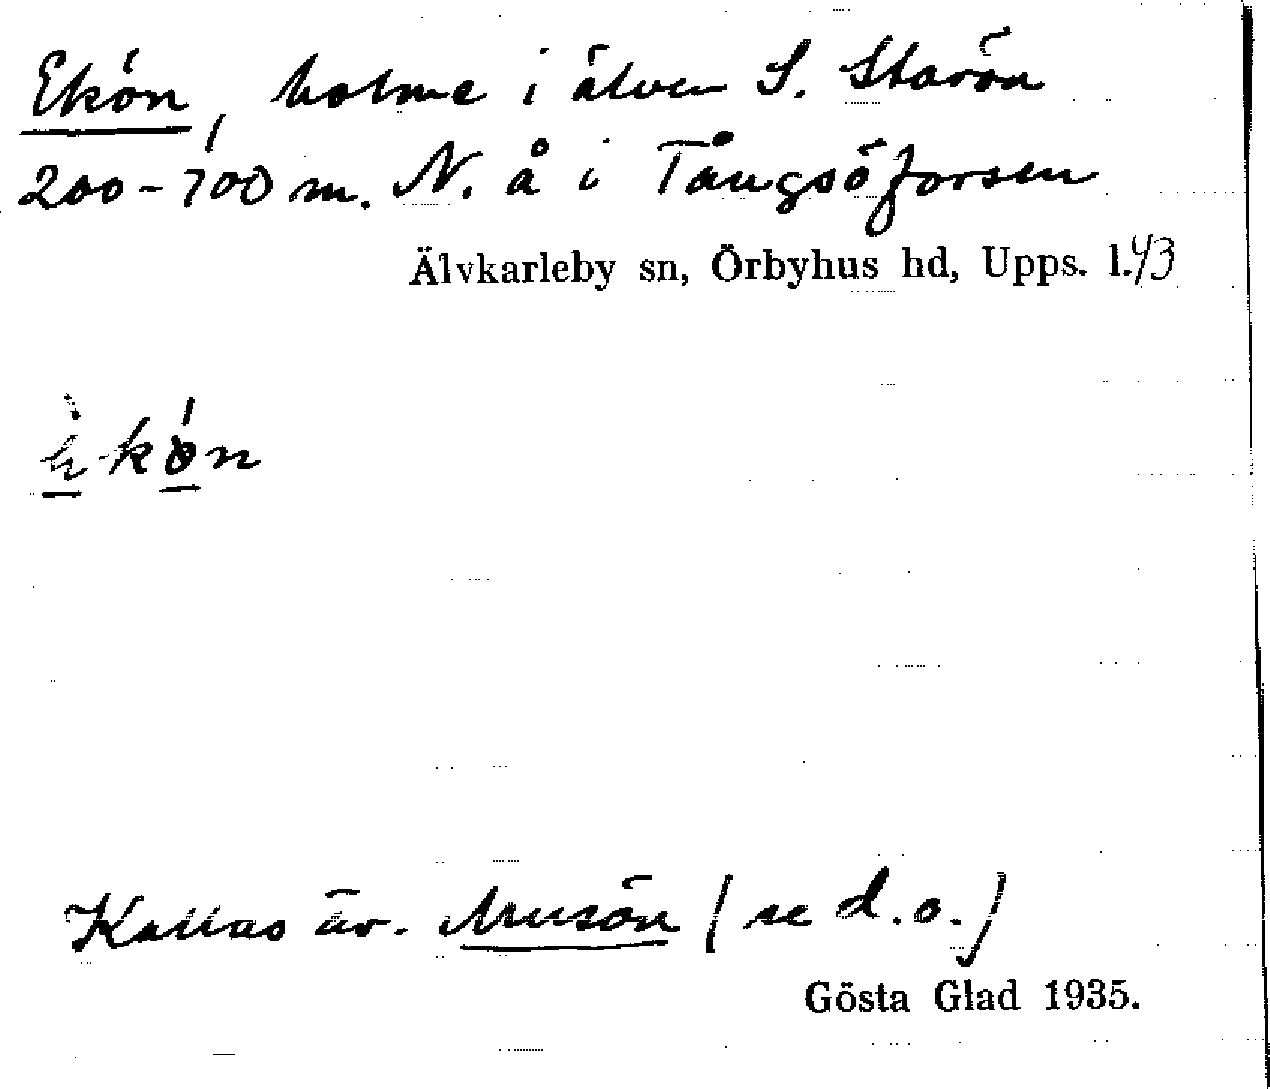 Ekön, holme i älven S. Starön
200-700 m. N. å i Tångsöforsen
Älvkarleby sn, Örbyhus hd, Upps. l. 43
kön
Kallas äv. Musön (se d.o.)
Gösta Glad 1935.